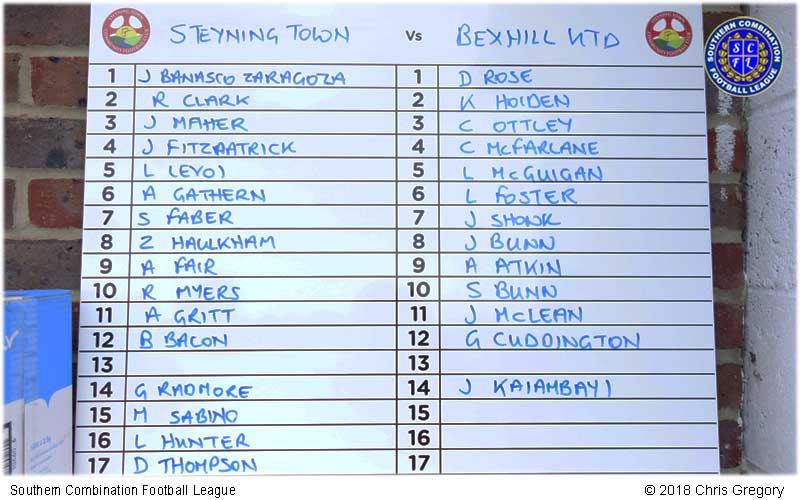 STEYNING TOWN Vs BEXHILL UTD
SOUTHERN COMBINATION
SCFL
FOOTBALL LEAGUE
1 J BANASCO ZARAGOZA 1 D ROSE
2 R CLARK 2 K HOLDEN
3 J MAHER 3 C OTTLEY
4 J FITZPATRICK 4 C McFARLANE
5 L LEVOI 5 L McGUIGAN
6 A GATHERN 6 L FOSTER
7 S FABER 7 J SHONK
8 Z HAULKHAM 8 J BUNN
9 A FAIR 9 A ATKIN
10 R MYERS 10 S BUNN
11 A GRITT 11 J McLEAN
12 B BACON 12 G CUDDINGTON
13 13
14 G RADMORE 14 J KAIAMBAYI
15 M SABINO 15
16 L HUNTER 16
17 D THOMPSON 17
Southern Combination Football League © 2018 Chris Gregory